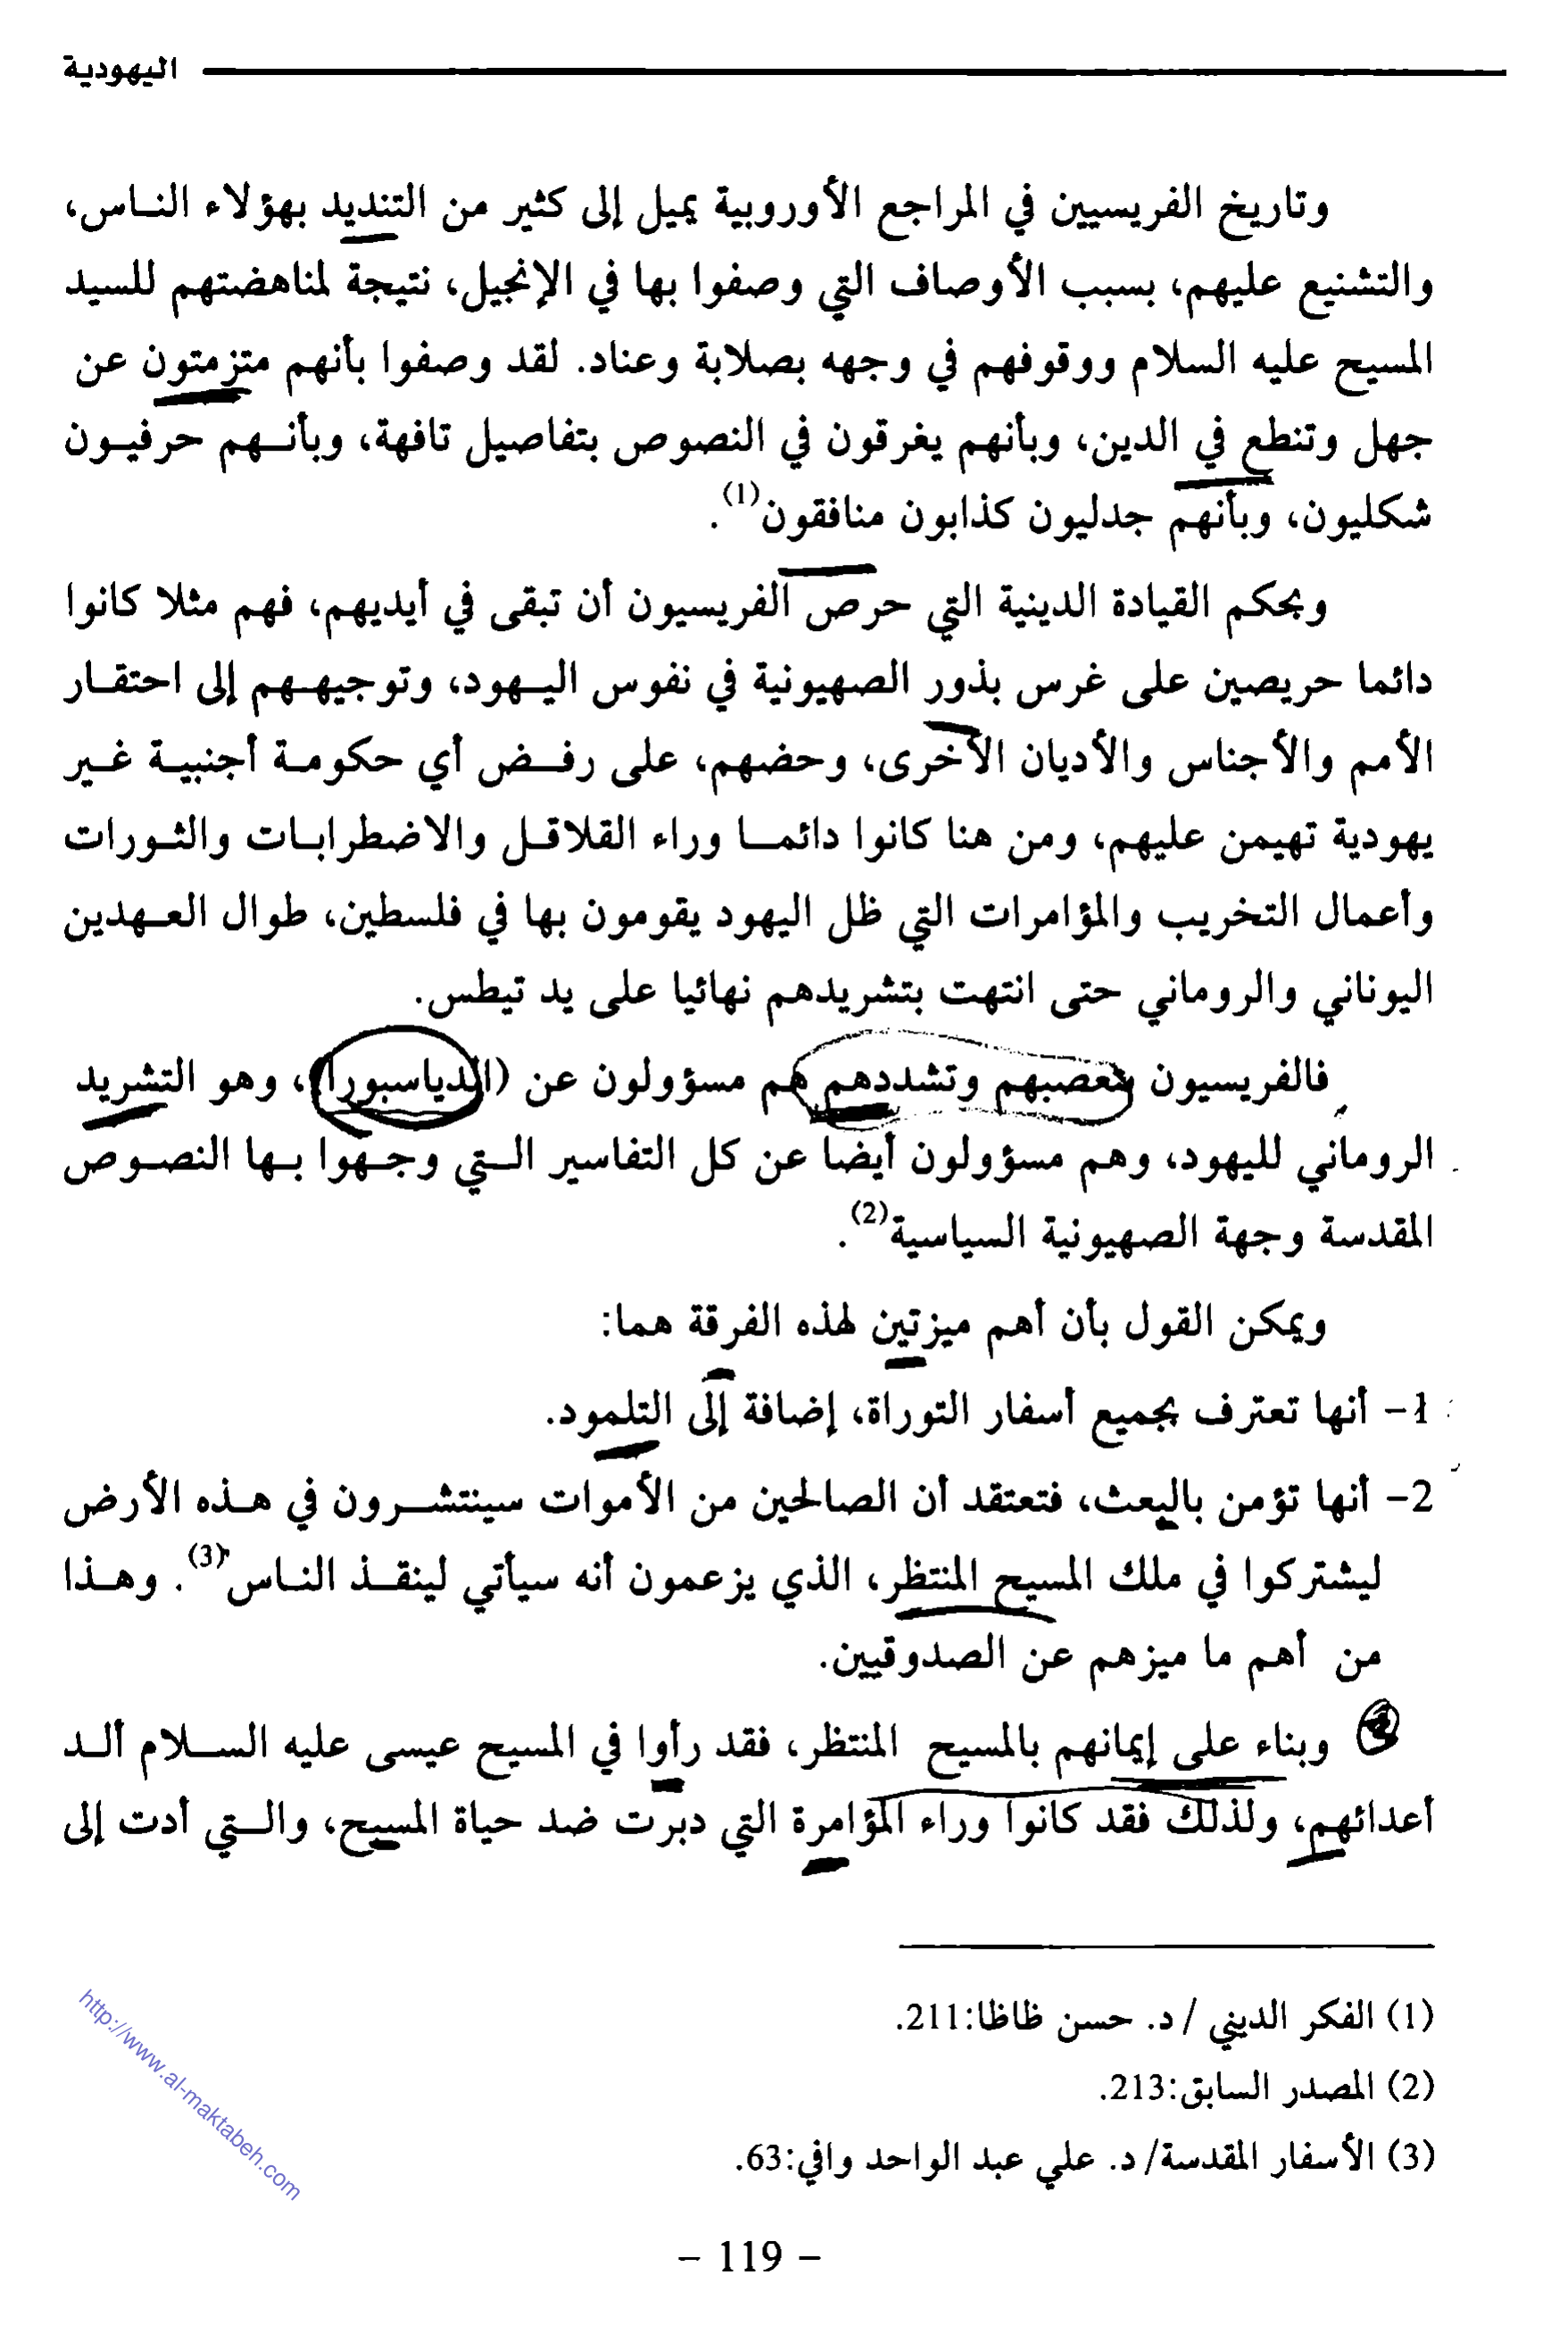 اليهودية
وتاريخ الفريسيين في المراجع الأوروبية يميل إلى كثير من التنديد بهؤلاء النـاس،
والتشنيع عليهم، بسبب الأوصاف التي وصفوا بها في الإنجيل، نتيجة لمناهضتهم للسيد
المسيح عليه السلام ووقوفهم في وجهه بصلابة وعناد. لقد وصفوا بأنهم متزمتون عن
جهل وتنطع في الدين، وبأنهم يغرقون في النصوص بتفاصيل تافهة، وبأنـهم حرفيـون
شكليون، وبأنهم جدليون كذابون منافقون(1).
وبحكم القيادة الدينية التي حرص الفريسيون أن تبقى في أيديهم، فهم مثلا كانوا
دائما حريصين على غرس بذور الصهيونية في نفوس اليـهود، وتوجيهـهم إلى احتقـار
الأمم والأجناس والأديان الأخرى، وحضهم، على رفـض أي حكومـة أجنبيـة غـير
يهودية تهيمن عليهم، ومن هنا كانوا دائمـا وراء القلاقـل والاضطرابـات والثـورات
وأعمال التخريب والمؤامرات التي ظل اليهود يقومون بها في فلسطين، طوال العـهدين
اليوناني والروماني حتى انتهت بتشريدهم نهائيا على يد تيطس.
فالفريسيون بتعصبهم وتشددهم هم مسؤولون عن (الدياسبورا)، وهو التشريد
الروماني لليهود، وهم مسؤولون أيضا عن كل التفاسير الـتي وجـهوا بـها النصـوص
المقدسة وجهة الصهيونية السياسية(2).
ويمكن القول بأن أهم ميزتين لهذه الفرقة هما:
1- أنها تعترف بجميع أسفار التوراة، إضافة إلى التلمود.
2- أنها تؤمن بالبعث، فتعتقد أن الصالحين من الأموات سينتشـرون في هـذه الأرض
ليشتركوا في ملك المسيح المنتظر، الذي يزعمون أنه سيأتي لينقـذ النـاس(3). وهـذا
من أهم ما ميزهم عن الصدوقيين.
وبناء على إيمانهم بالمسيح المنتظر، فقد رأوا في المسيح عيسى عليه السـلام ألـد
أعدائهم، ولذلك فقد كانوا وراء المؤامرة التي دبرت ضد حياة المسيح، والـتي أدت إلى
(1) الفكر الديني / د. حسن ظاظا:211.
(2) المصدر السابق:213.
(3) الأسفار المقدسة/ د. علي عبد الواحد وافي:63.
http://www.al-maktabeh.com
- 119 -